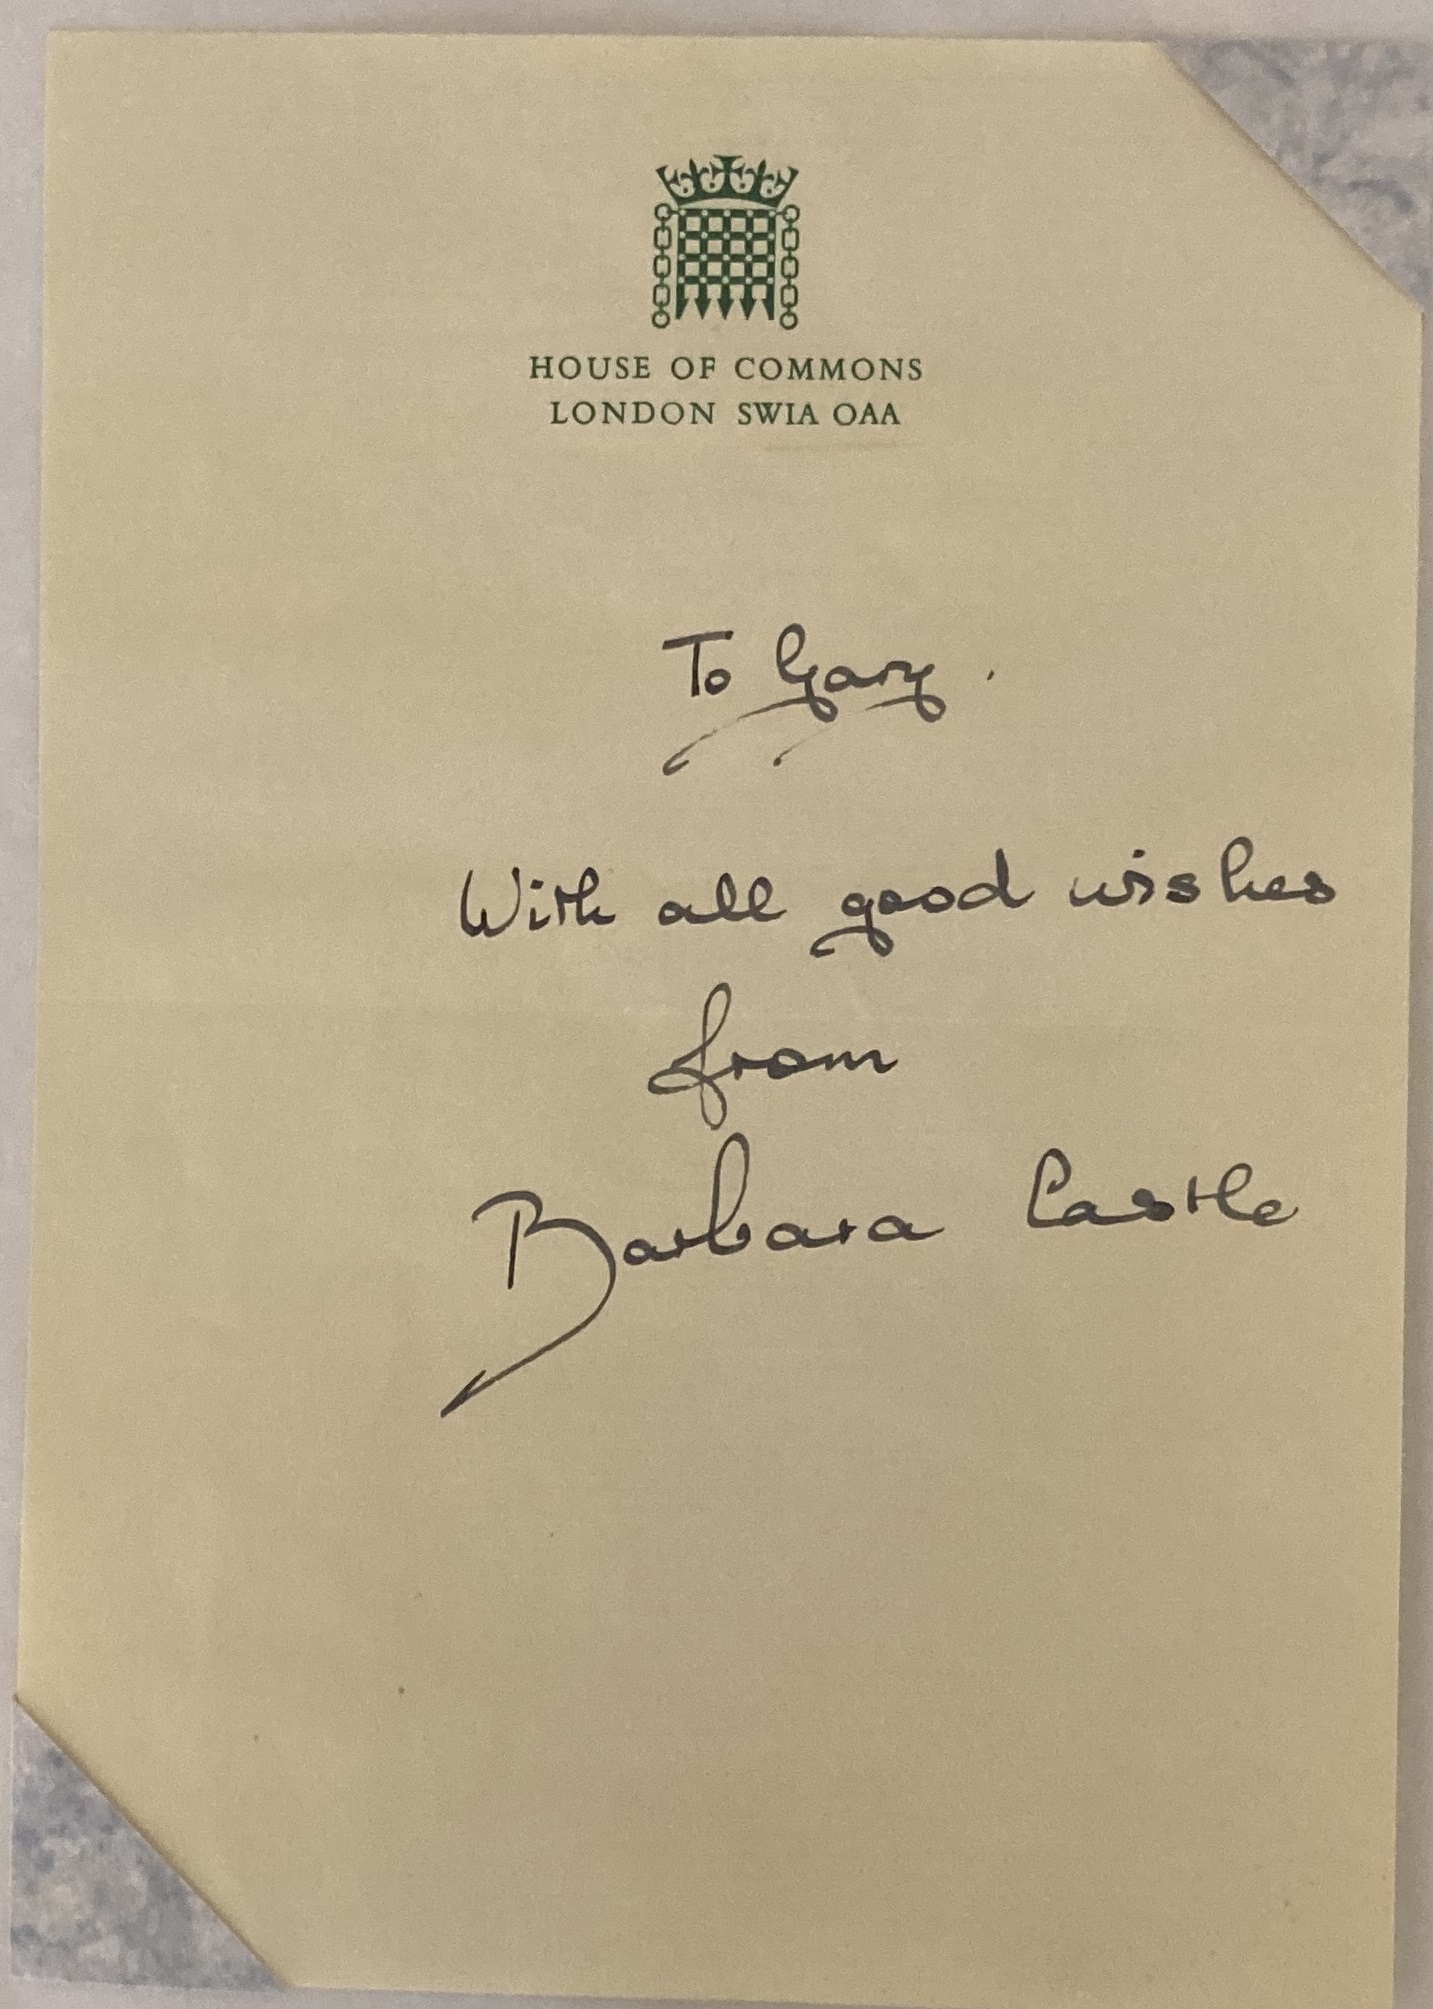 HOUSE OF COMMONS
LONDON SW1A 0AA
To Gary.
With all good wishes
from
Barbara Castle